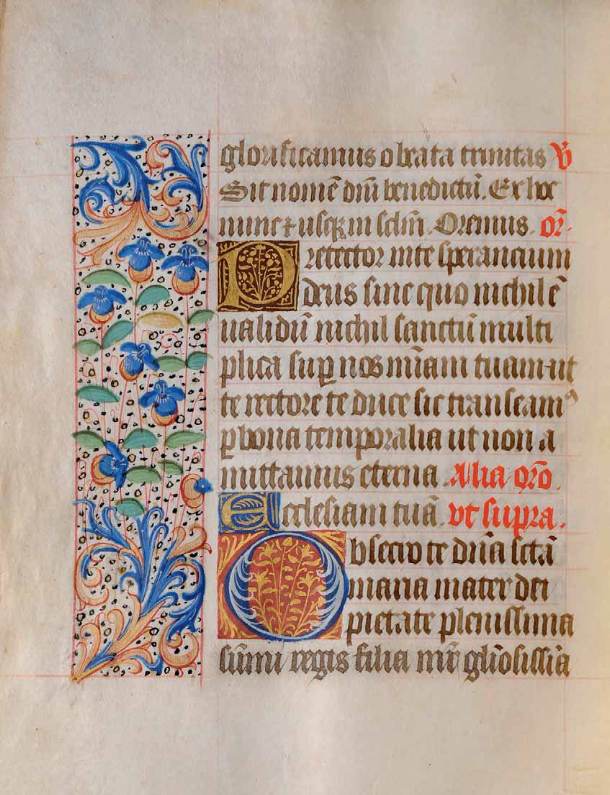 glorificamus o beata trinitas V̄
Sit nomē dñi benedictū. Ex hoc
nunc ⁊ usq̨ in sclm̄. Oremus. or̄.
Pretector in te sperancium
deus sine quo nichil ē
ualidū nichil sanctū multi
plica sup̱ nos m̄iam tuam ut
te rectore te duce sic transeamꝰ
ꝑ bona temporalia ut non a
mittamus eterna. Alia or̄o.
Ecclesiam tuā. vt supra.
Obsecro te dn̄a sctā
maria mater dei
pietate plenissima
sūmi regis filia mr̄ gl̄iosissīa